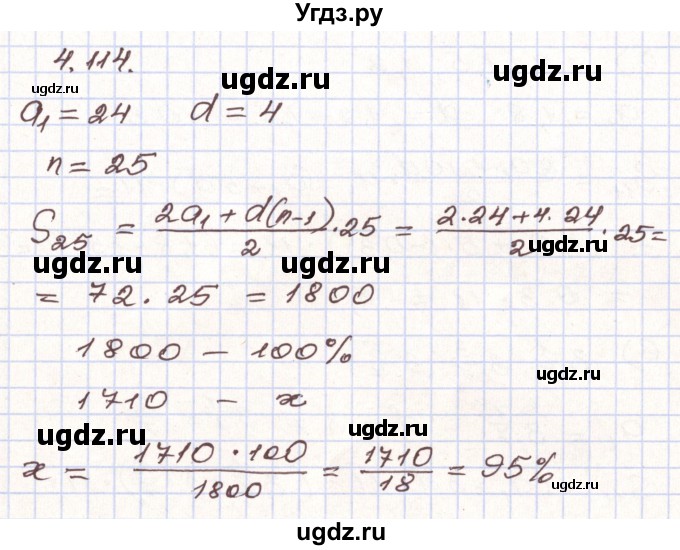 Угдз.ру
4.114.
ugdz.ru ugdz.ru ugdz.ru
a₁ = 24 d = 4
n = 25
S₂₅ = (2a₁ + d(n-1))/2 · 25 = (2·24 + 4·24)/2 · 25 =
ugdz.ru ugdz.ru ugdz.ru
= 72 · 25 = 1800
1800 – 100%
ugdz.ru
1710 – x
ugdz.ru ugdz.ru
x = (1710 · 100)/1800 = 1710/18 = 95%
ugdz.ru
ugdz.ru